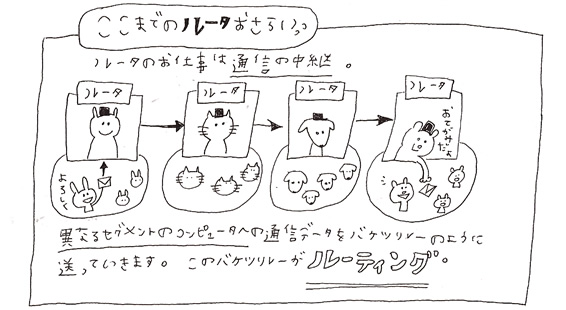 ここまでのルータおさらいっ
ルータのお仕事は通信の中継。
ルータ
ルータ
ルータ
ルータ
おてがみだよ
よろしく
異なるセグメントのコンピュータへの通信データをバケツリレーのように
送っていきます。このバケツリレーがルーティング。